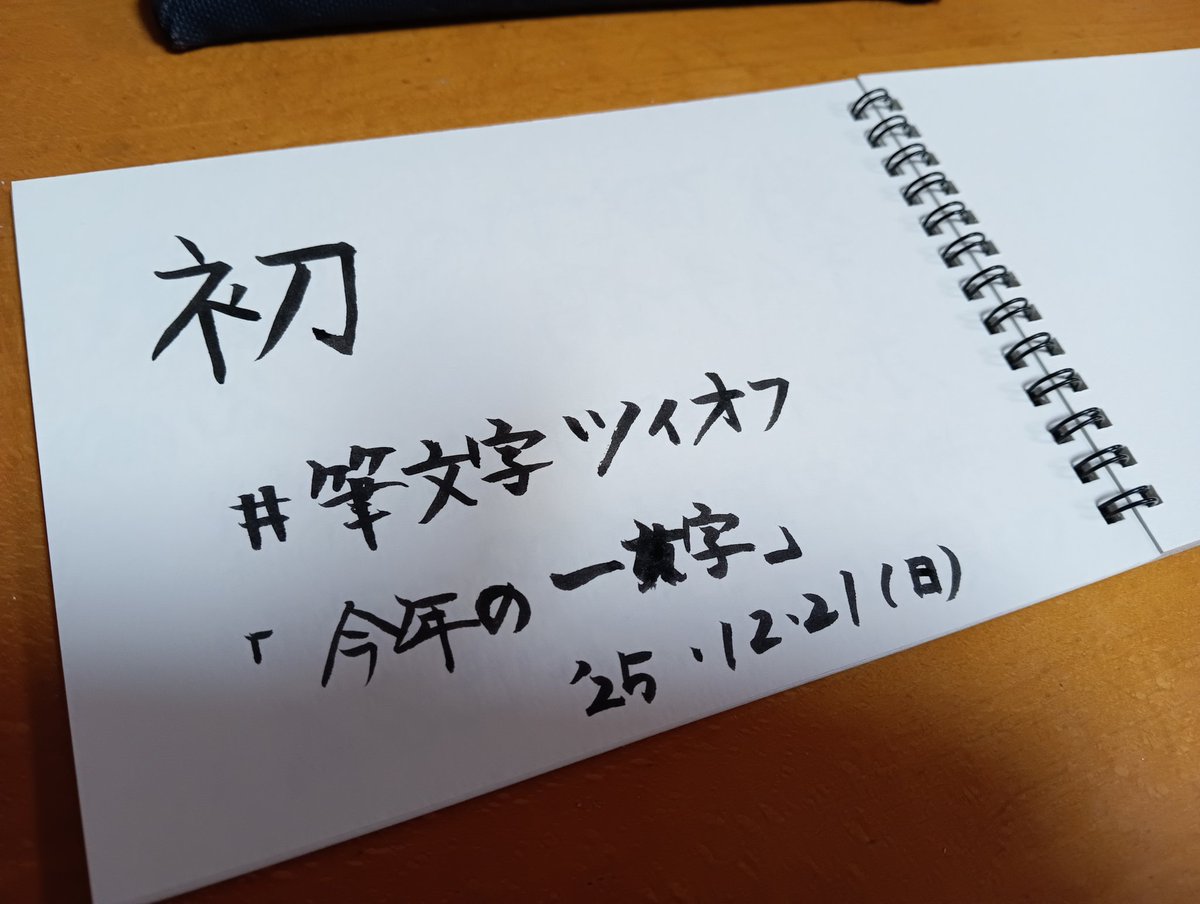 初
#筆文字ツイオフ
「今年の一文字」
'25.12.21(日)